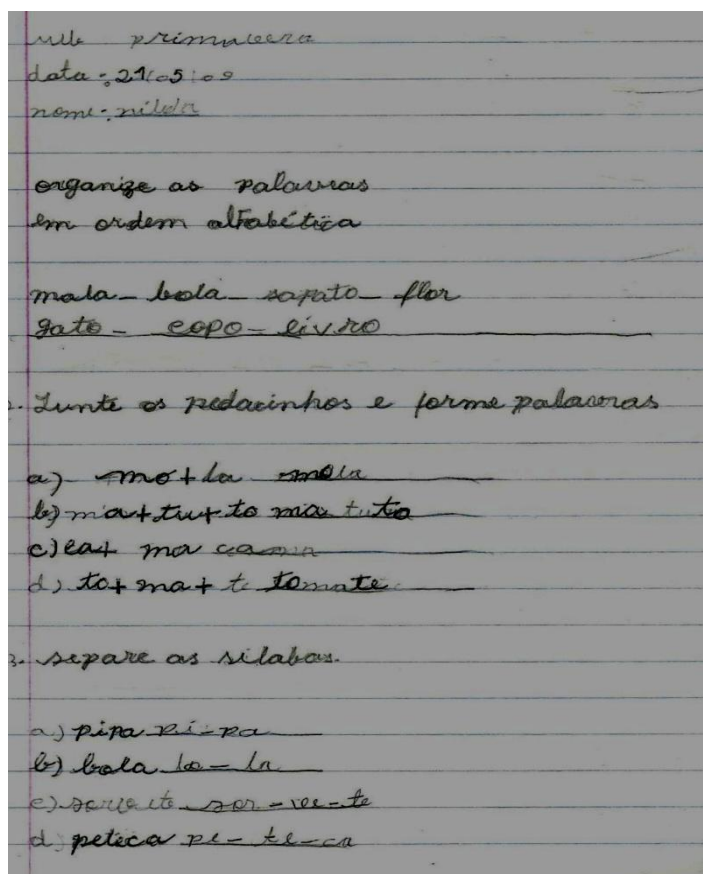 primavera
data: 21/05/09
nome: nilda
organize as palavras
em ordem alfabética
mala - bola - sapato - flor
gato - copo - livro
2. Junte os pedacinhos e forme palavras
a) mo + la mola
b) ma + tu + to matuto
c) ca + ma cama
d) to + ma + te tomate
3. separe as silabas.
a) pipa pi-pa
b) bola bo-la
c) sorvete sor-ve-te
d) peteca pe-te-ca